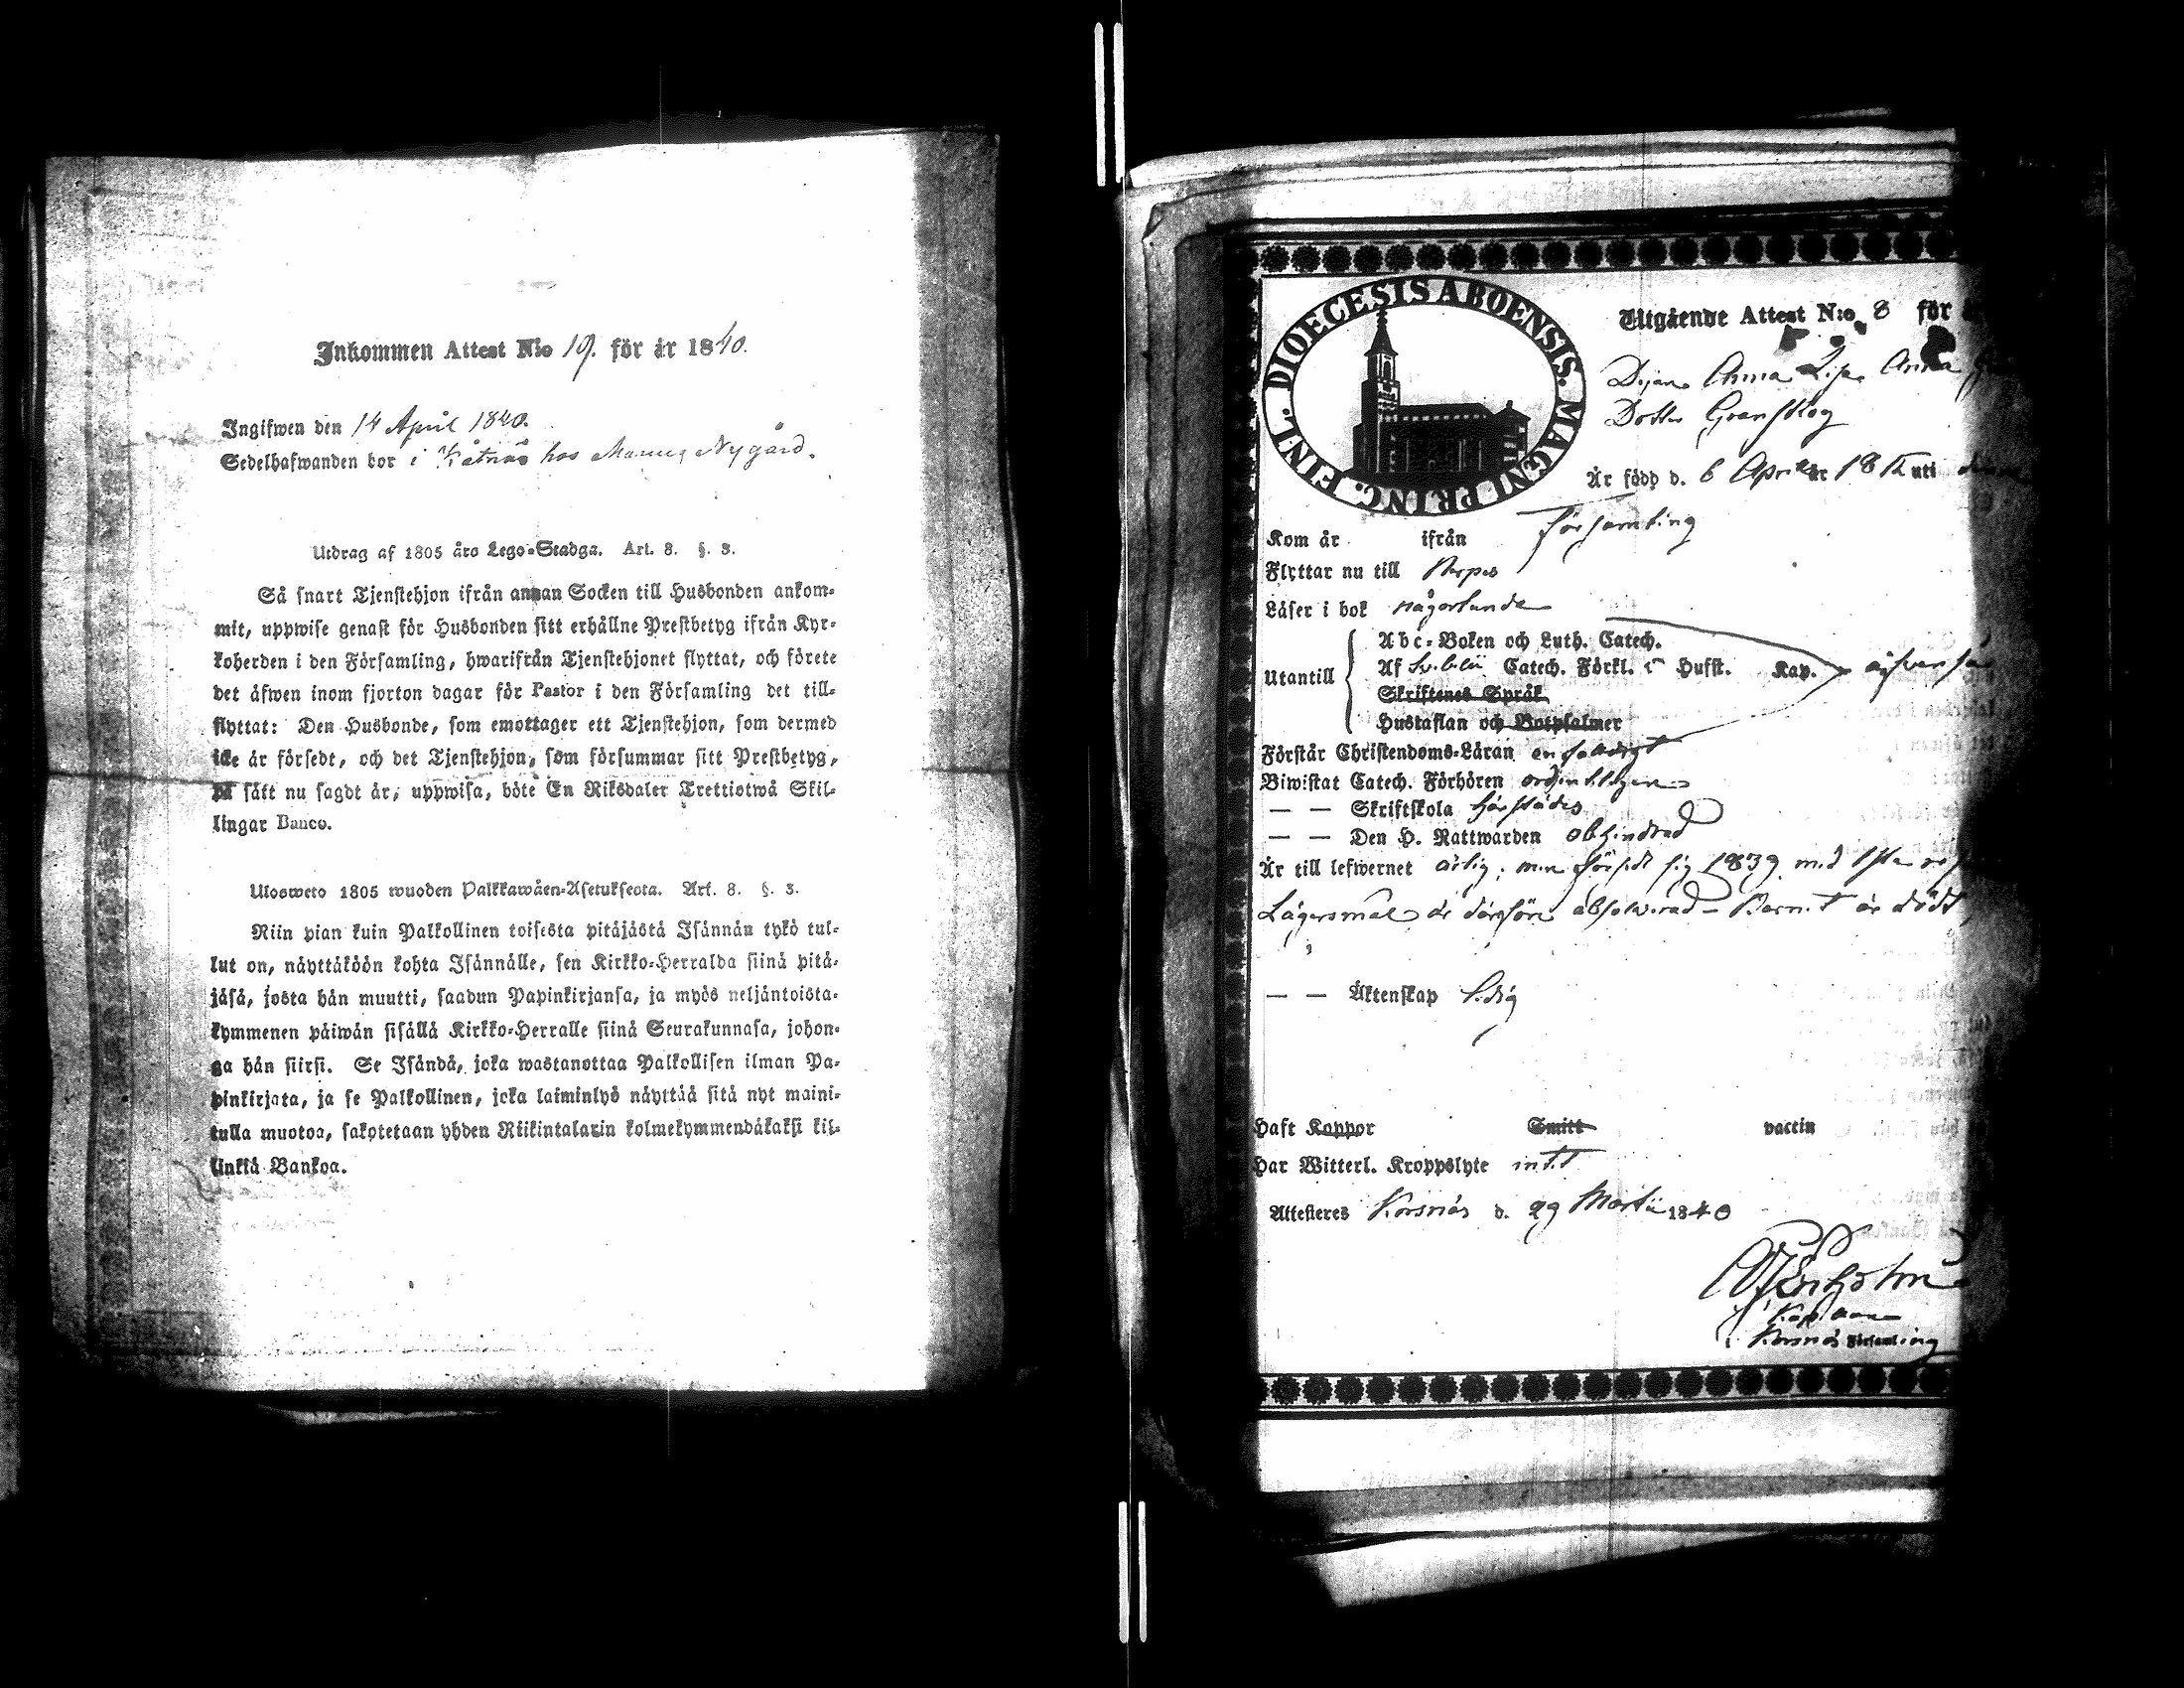 Inkommen Attest N:o 19. för år 1840.
Ingifwen den 14 April 1840.
Sedelhafwanden bor i Kåtnäs hos Nygård.
Utdrag af 1805 års Lego-Stadga. Art. 8. §. 3.
Så snart Tjenstehjon ifrån annan Socken till Husbonden ankom-
mit, uppwise genast för Husbonden sitt erhållne Prestbetyg ifrån Kyr-
koherden i den Församling, hwarifrån Tjenstehjonet flyttat, och förete
det åfwen inom fjorton dagar för Pastor i den Församling det till-
flyttat: Den Husbonde, som emottager ett Tjenstehjon, som dermed
icke är försedt, och det Tjenstehjon, som försummar sitt Prestbetyg,
på sått nu sagdt är, uppwisa, böte En Riksdaler Trettiotwå Skil-
lingar Banco.
Ulosweto 1805 wuoden Palkkawäen-Asetuksesta. Art. 8. §. 3.
Niin pian kuin Palkollinen toisesta pitäjästä Isännän tykö tul-
lut on, näyttäköön kohta Isännälle, sen Kirkko-Herralda siinä pitä-
jäsä, josta hän muutti, saadun Papinkirjansa, ja myös neljäntoista-
kymmenen päiwän sisällä Kirkko-Herralle siinä Seurakunnasa, johon-
ga hän siirsi. Se Isändä, joka wastanottaa Palkollisen ilman Pa-
pinkirjata, ja se Palkollinen, joka laiminlyö näyttää sitä nyt maini-
tulla muotoa, sakotetaan yhden Riikintalarin kolmekymmendäkaksi kil-
linkiä Bankoa.
DIOECESIS ABOENSIS. MAGNI PRINC. FINL.
Utgående Attest N:o 8 för
Anna Lisa Anna
Dotter Granskog
Är född d. 6 April år 18 uti
Församling
Kom år ifrån
Flyttar nu till
Läser i bok någorlunda
Utantill
Abc-Boken och Luth. Catech.
Af Svebelii Catech. Förkl. Hufst. Kap.
Skriftenes Språk
Hustaflan och Botpsalmer
Förstår Christendoms-Läran enfaldigt
Biwistat Catech. Förhören ordentligen
— — Skriftskola härstädes
— — Den H. Nattwarden obehindrad
Är till lefwernet ärlig, men försedt sig 1839 med 1sta
Lägersmål är därföre absolverad – Barnet är dödt
— — Äktenskap ledig
Haft Koppor Smitt vaccin
Har Witterl. Kroppslyte intet
Attesteres Korsnäs d. 29 Martii 1840
Kaplan
i Korsnäs Församling